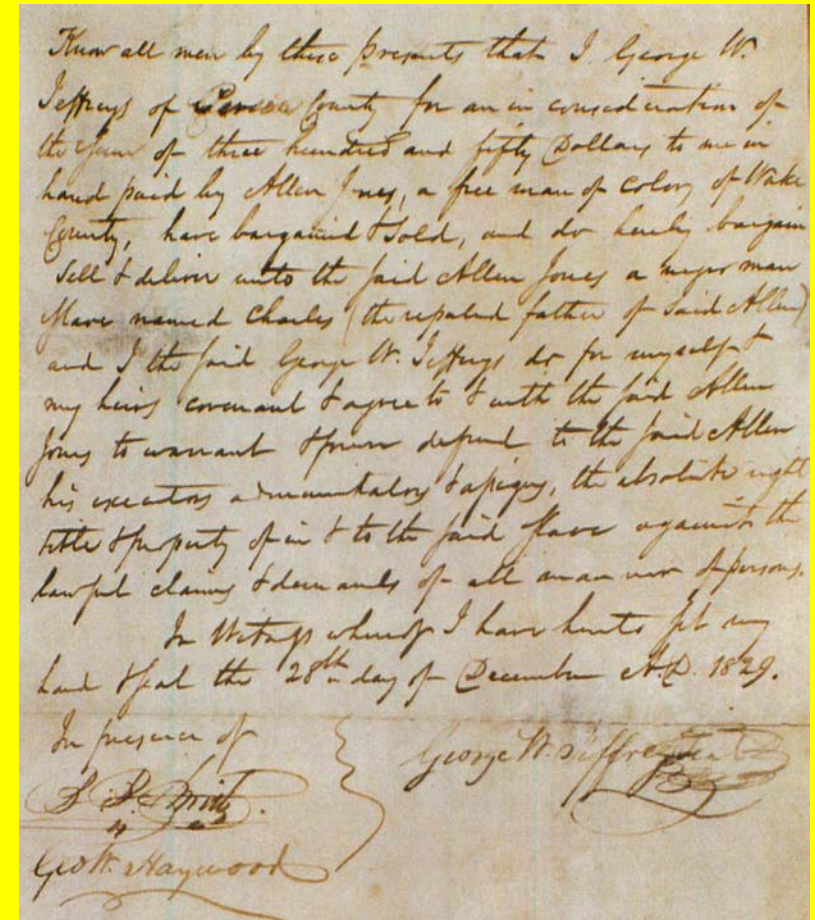 Know all men by these presents that I George W.
Jeffreys of Person County for an in consideration of
the Sum of three hundred and fifty Dollars to me in
hand paid by Allen Jones, a free man of color of Wake
County, have bargained & Sold, and do hereby bargain
Sell & deliver unto the said Allen Jones a negro man
Slave named Charles (the reputed father of said Allen)
and I the said George W. Jeffreys do for myself &
my heirs covenant & agree to & with the said Allen
Jones to warrant & forever defend to the said Allen
his executors administrators & assigns, the absolute right
title & property of in & to the said slave against the
lawful claims & demands of all manner of persons.
In Witness whereof I have hereunto set my
hand & seal the 28th day of December A.D. 1829.
In presence of
George W. Jeffreys Seal
Geo W. Haywood